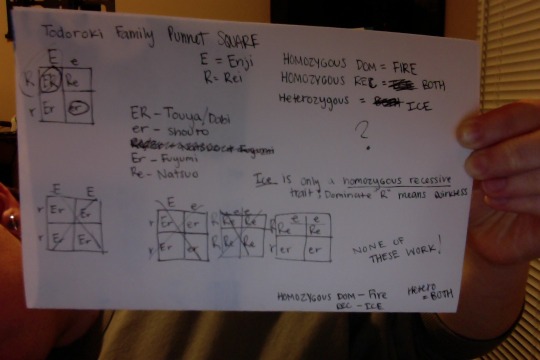 Todoroki Family Punnet SQUARE
E = Enji
R = Rei
HOMOZYGOUS DOM = FIRE
HOMOZYGOUS REC = BOTH
Heterozygous = ICE
?
E e
R ER Re
r Er er
ER - Touya/Dabi
er - shouto
Er - Fuyumi
Re - Natsuo
Ice is only a homozygous recessive
trait, Dominate "R" means
E E
r Er Er
r Er Er
E e
r Er er
r Er er
e e
R Re Re
R Re Re
e e
R Re Re
r er er
NONE OF
THESE WORK!
HOMOZYGOUS DOM - Fire
REC - ICE
Hetero
= BOTH